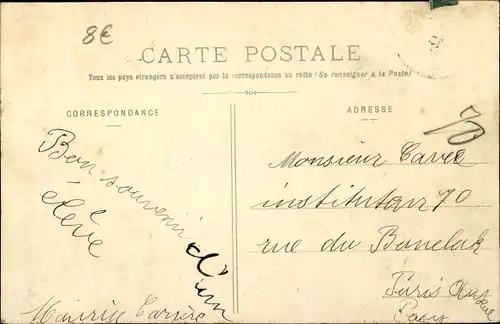 8€
CARTE POSTALE
Tous les pays étrangers n'acceptent pas la correspondance au recto (Se renseigner à la Poste)
CORRESPONDANCE
ADRESSE
Bon souvenir d'un
élève
Maurice Carrière
70
Monsieur Cavé
instituteur 70
rue du
Paris